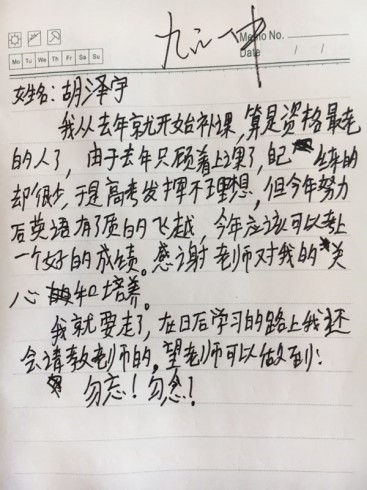 九江一中
Memo No.
Date / /
Mo Tu We Th Fr Sa Su
姓名:胡泽宇
我从去年就开始补课,算是资格最老
的人了,由于去年只顾着上课了,自己 练的
却很少,于是高考发挥不理想,但今年努力
后英语有了质的飞越,今年应该可以考上
一个好的成绩。感谢老师对我的关
心和培养。
我就要走了,在日后学习的路上我还
会请教老师的,望老师可以做到:
勿忘!勿忿!